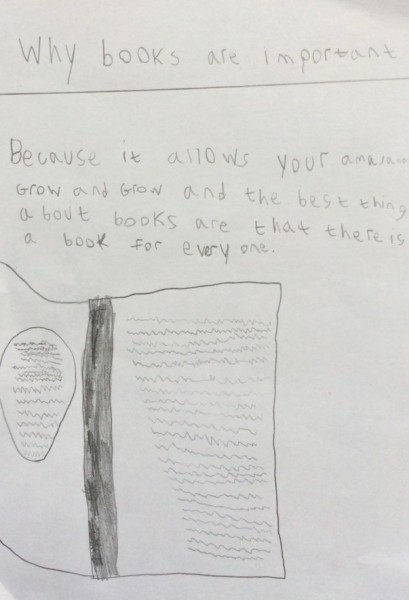 Why books are important
Because it allows your
Grow and Grow and the best thing
about books are that there is
a book for every one.